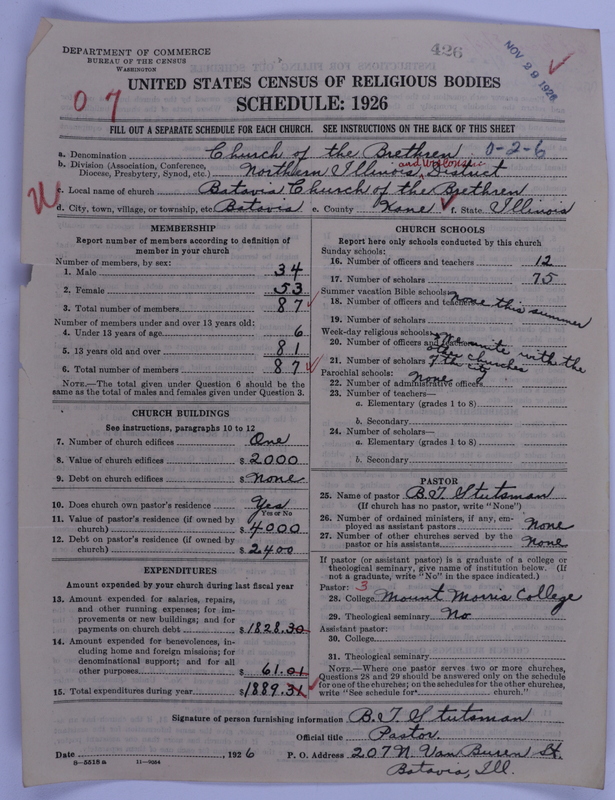 DEPARTMENT OF COMMERCE
BUREAU OF THE CENSUS
WASHINGTON
426
NOV 29 1926
UNITED STATES CENSUS OF RELIGIOUS BODIES
SCHEDULE: 1926
0 7
FILL OUT A SEPARATE SCHEDULE FOR EACH CHURCH. SEE INSTRUCTIONS ON THE BACK OF THIS SHEET
a. Denomination Church of the Brethren 0-2-6
b. Division (Association, Conference, Diocese, Presbytery, Synod, etc.) Northern Illinois and Wisconsin District
c. Local name of church Batavia Church of the Brethren
d. City, town, village, or township, etc. Batavia e. County Kane f. State Illinois
MEMBERSHIP
Report number of members according to definition of
member in your church
Number of members, by sex:
1. Male 34
2. Female 53
3. Total number of members 87
Number of members under and over 13 years old:
4. Under 13 years of age 6
5. 13 years old and over 81
6. Total number of members 87
NOTE.—The total given under Question 6 should be
same as the total of males and females given under Question 3.
CHURCH BUILDINGS
See instructions, paragraphs 10 to 12
7. Number of church edifices One
8. Value of church edifices $ 2000
9. Debt on church edifices $ None
10. Does church own pastor's residence Yes
Yes or No
11. Value of pastor's residence (if owned by
church) $ 4000
12. Debt on pastor's residence (if owned by
church) $ 2400
EXPENDITURES
Amount expended by your church during last fiscal year
13. Amount expended for salaries, repairs,
and other running expenses; for im-
provements or new buildings; and for
payments on church debt $ 1828.30
14. Amount expended for benevolences, in-
cluding home and foreign missions; for
denominational support; and for all
other purposes $ 61.01
15. Total expenditures during year $ 1889.31
CHURCH SCHOOLS
Report here only schools conducted by this church
Sunday schools:
16. Number of officers and teachers 12
17. Number of scholars 75
Summer vacation Bible schools:
18. Number of officers and teachers None this summer
19. Number of scholars
Week-day religious schools:
20. Number of officers and teachers We unite with the
other churches
21. Number of scholars of the city
Parochial schools:
22. Number of administrative officers None
23. Number of teachers—
a. Elementary (grades 1 to 8)
b. Secondary
24. Number of scholars—
a. Elementary (grades 1 to 8)
b. Secondary
PASTOR
25. Name of pastor B.T. Stutsman
(If church has no pastor, write "None")
26. Number of ordained ministers, if any, em-
ployed as assistant pastors None
27. Number of other churches served by the
pastor or his assistants None
If pastor (or assistant pastor) is a graduate of a college or
theological seminary, give name of institution below. (If
not a graduate, write "No" in the space indicated.)
Pastor: 3
28. College Mount Morris College
29. Theological seminary No
Assistant pastor:
30. College
31. Theological seminary
NOTE.—Where one pastor serves two or more churches,
Questions 28 and 29 should be answered only on the schedule
for one of the churches; on the schedules for the other churches,
write "See schedule for church."
Signature of person furnishing information B.T. Stutsman
Official title Pastor.
Date , 1926 P. O. Address 207 N. Van Buren St.
8—5518 a 11—9064 Batavia, Ill.